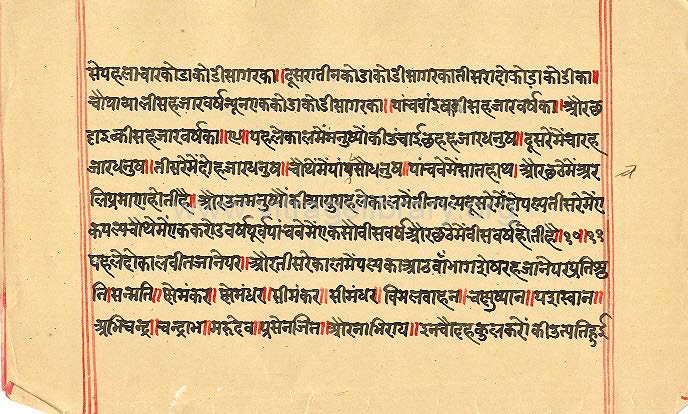 सेपहलाचारकोडाकोडीसागरका॥दूसरातीनकोडाकोडीसागरकातीसरादोकोडाकोडीका॥
चौथाब्यालीसहजारवर्षन्यूनएककोडाकोडीसागरका॥पांचवांइक्कीसहजारवर्षका॥औरछ
ट्ठाइक्कीसहजारवर्षका॥९॥पहलेकालमेंमनुष्योंकीउंचाईछहहजारधनुष॥दूसरेमेंचारह
जारधनुष॥तीसरेमेंदोहजारधनुष॥चौथेमेंपांचसौधनुष॥पांचवेमेंसातहाथ॥औरछठवेमेंअर
त्निप्रमाणहोतीहै॥औरउनमनुष्योंकीआयुपहलेकालमेंतीनपल्यदूसरेमेंदोपल्यतीसरेमेंए
कपल्यचौथेमेंएककरोडवर्षपूर्वपांचवेमेंएकसोवीसवर्षऔरछठवेमेंवीसवर्षहोतीहै॥१०॥११
पहलेदोकालवीतजानेपर॥औरतीसरेकालमेंपल्यकाआठवाँभागशेषरहजानेपरप्रतिश्रु
ति॥सन्मति॥क्षेमंकर॥क्षेमंधर॥सीमंकर॥सीमंधर॥विमलवाहन॥चक्षुष्मान॥यशस्वान॥
अभिचन्द्र॥चन्द्राभ॥मरुदेव॥प्रसेनजित॥औरनाभिराय॥इनचौदहकुलकरोंकीउत्पत्तिहुई